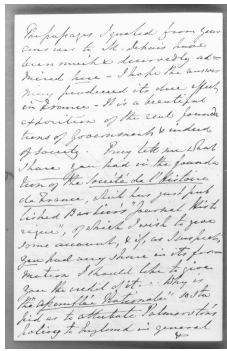 The passages I quoted from your
answer to M. Dehais have
been much & deservedly ad=
mired here - I hope the answer
has produced its due effect
in France - It is a beautiful
exposition of the real founda
tions of Government & indeed
of society. Pray tell me what
share you had in the founda
tion of the Société de l'Histoire
de France, which has just pub
lished Barbier's "Journal Histo
rique", of which I wish to give
some account, & if, as I suspect,
you had any share in its for
mation I should like to give
you the credit of it. Why is
the "Assemblée Nationale" so
as to attribute Palmerston's
policy to England in general